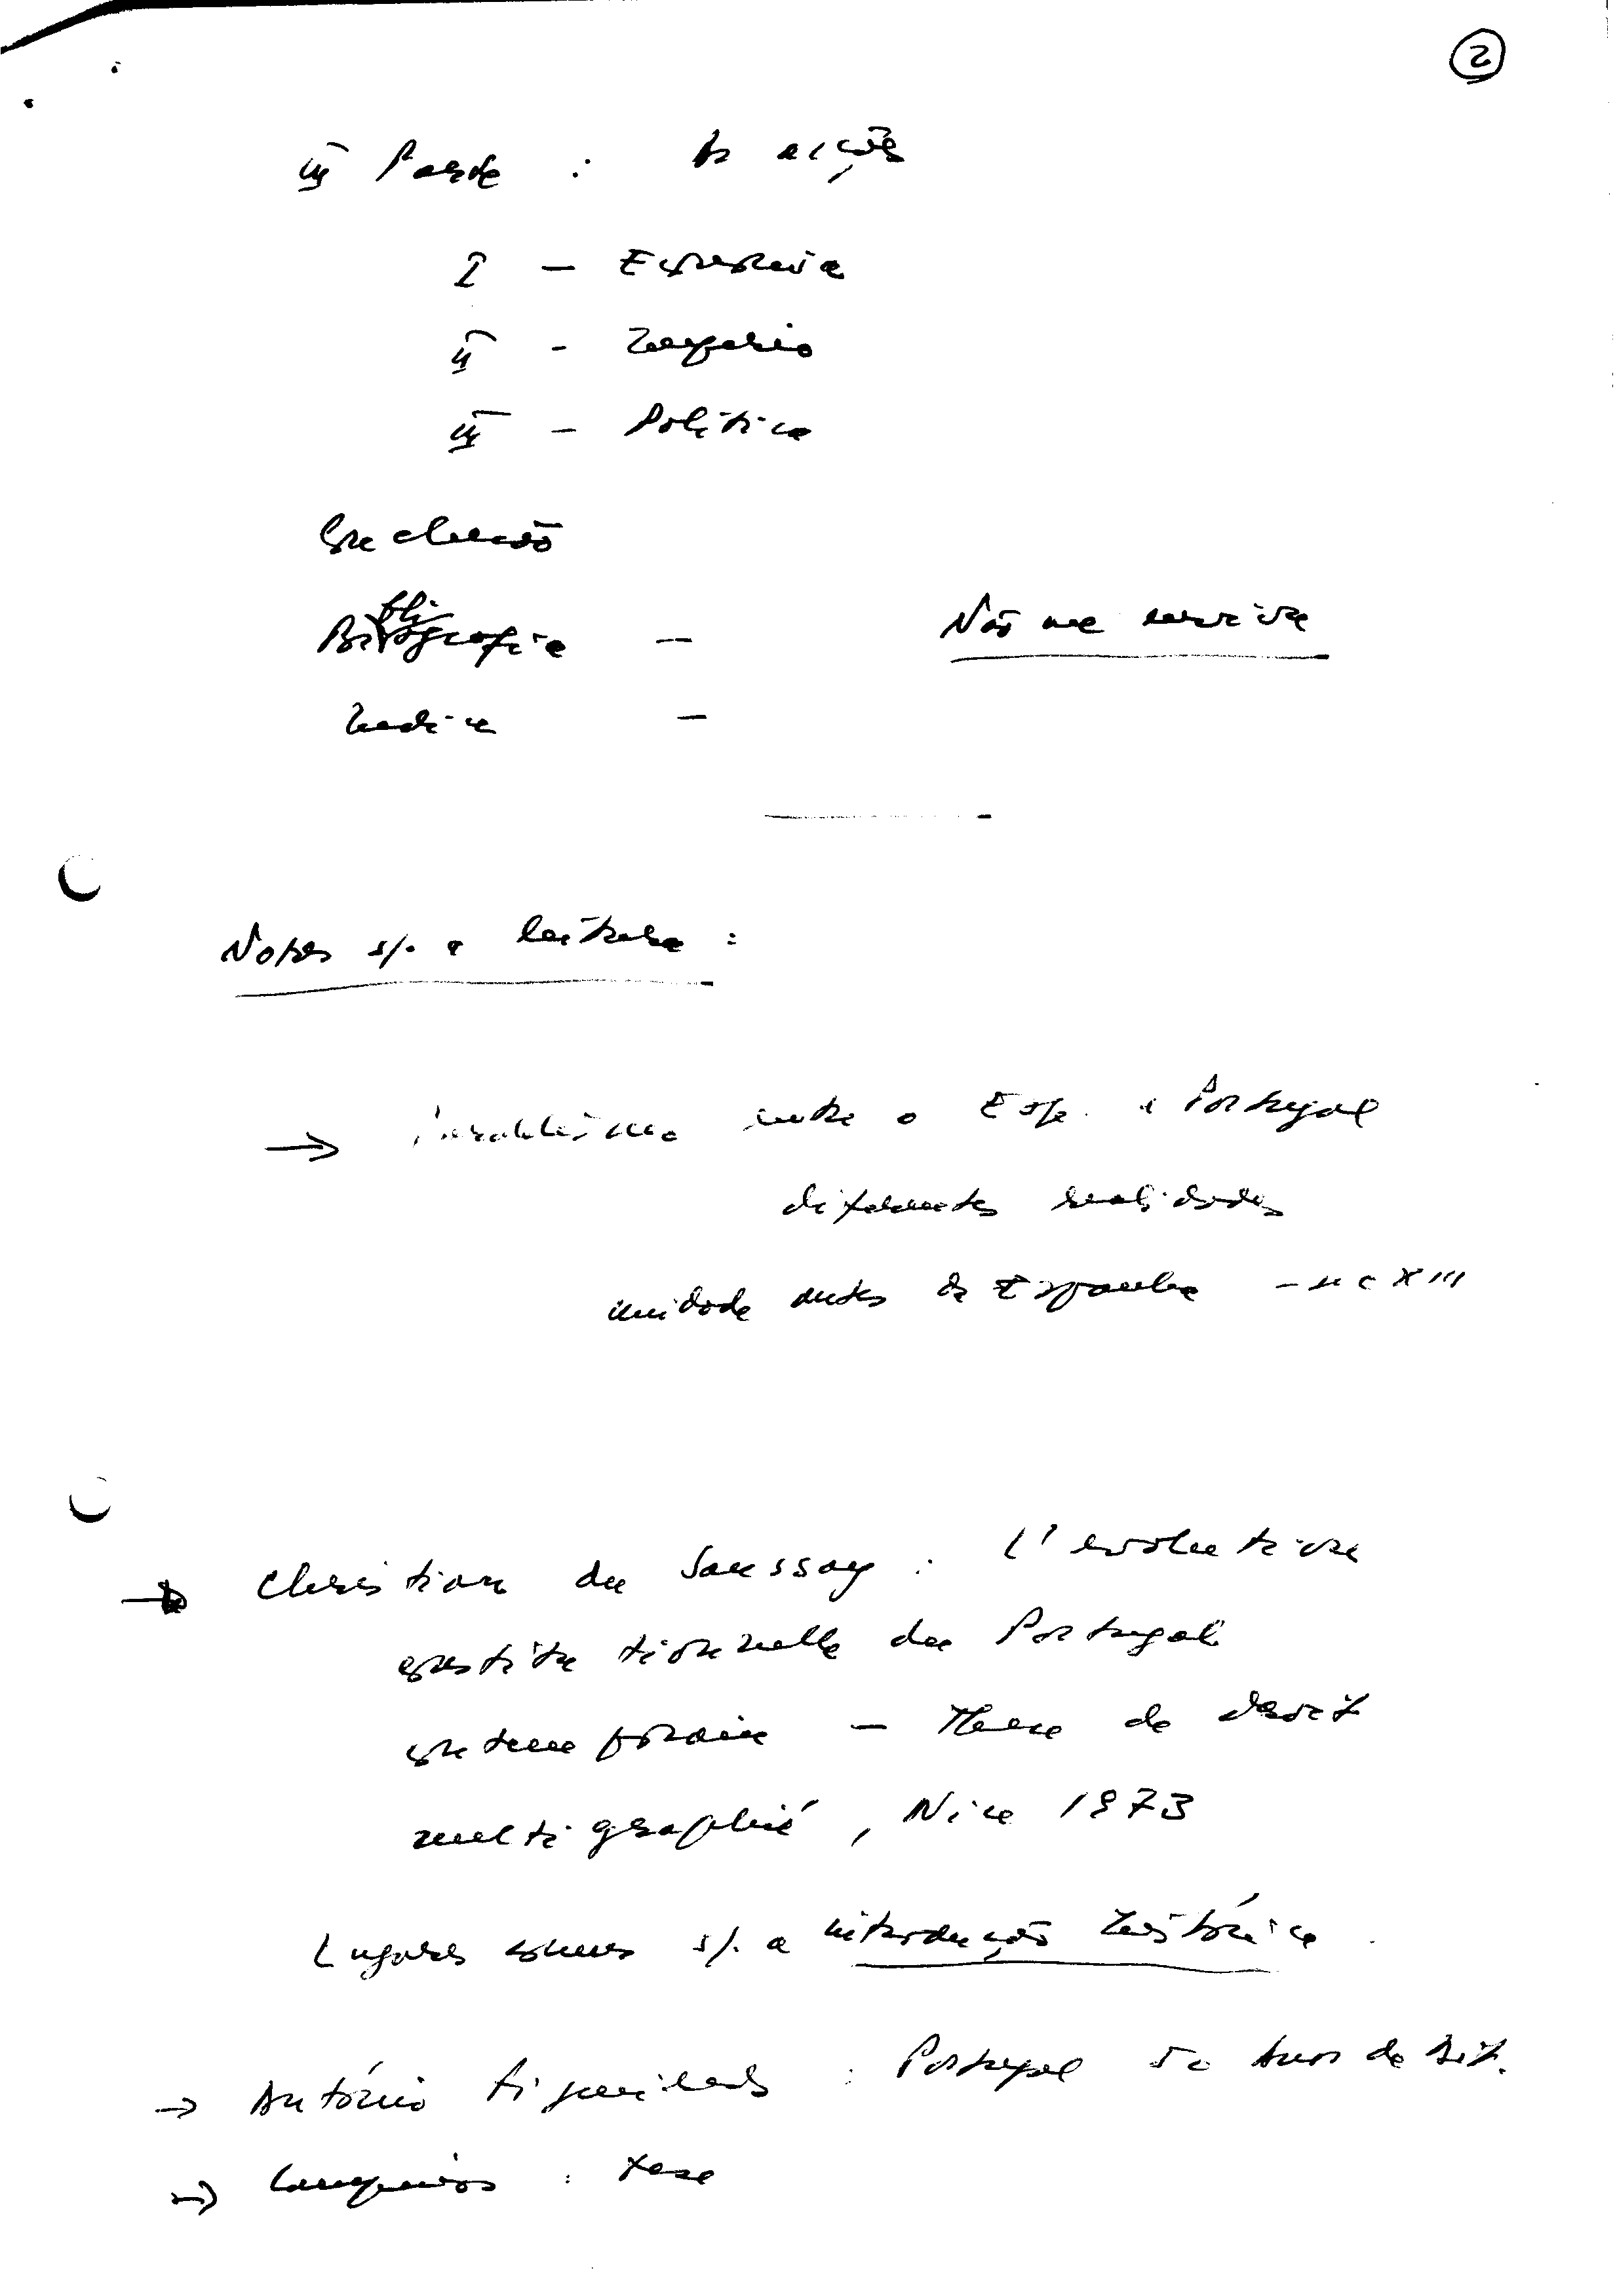 2
III Parte : As acções
I – Economia
II – Império
III – Política
Conclusão
Bibliografia – Não me servire
Indice –
Notas s/. a leitura :
→ Paralelismo entre o Esp. e Portugal
diferentes realidades
unidade antes da Espanha – sec XIII
→ Christian du Saussay : L'evolution
constitutionnelle du Portugal
contemporain – These de droit
multigraphié, Nice 1973
Lugares comuns s/. a introdução histórica.
→ António Figueiredo : Portugal 50 Anos de Dit.
→ Campinos : tese